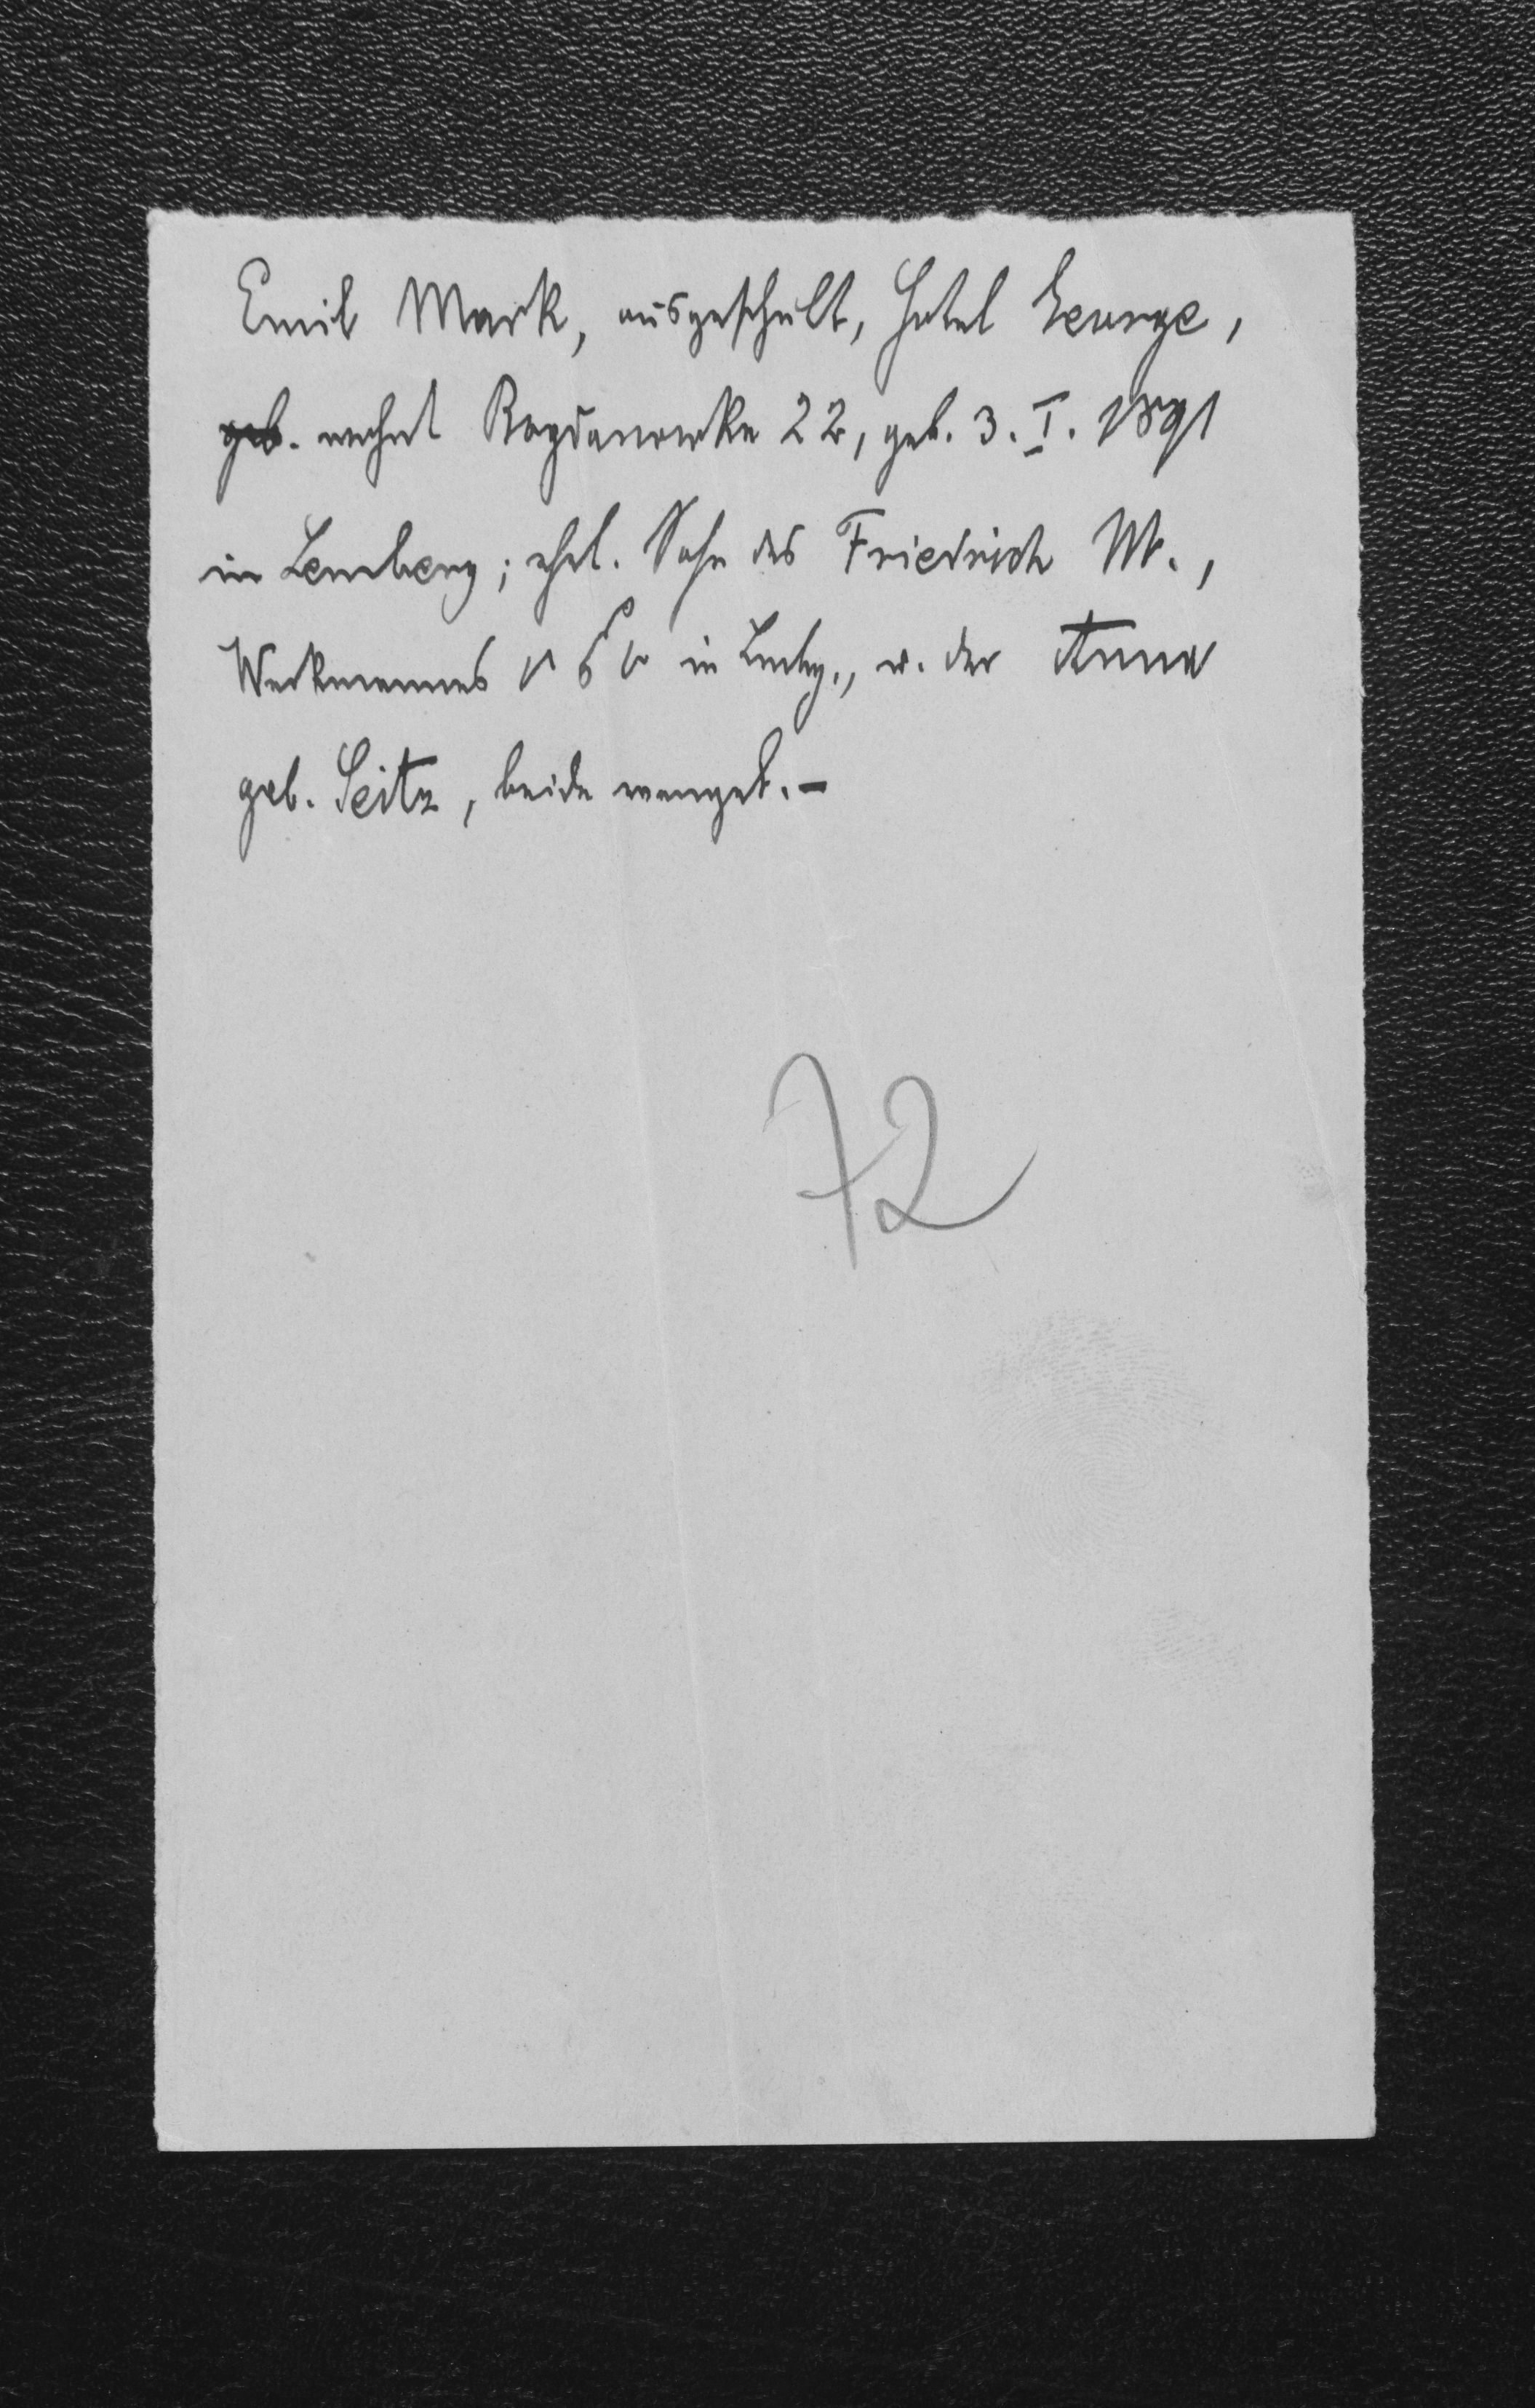 Emil Mark, ausgeschult, Hotel George,
geb. wohnt Bogdanowka 22, geb. 3. I. 1891
in Lemberg; ehel. Sohn des Friedrich M.,
Werkmannes in Lmbg., u. der Anna
geb. Seitz, beide evangel. –
72